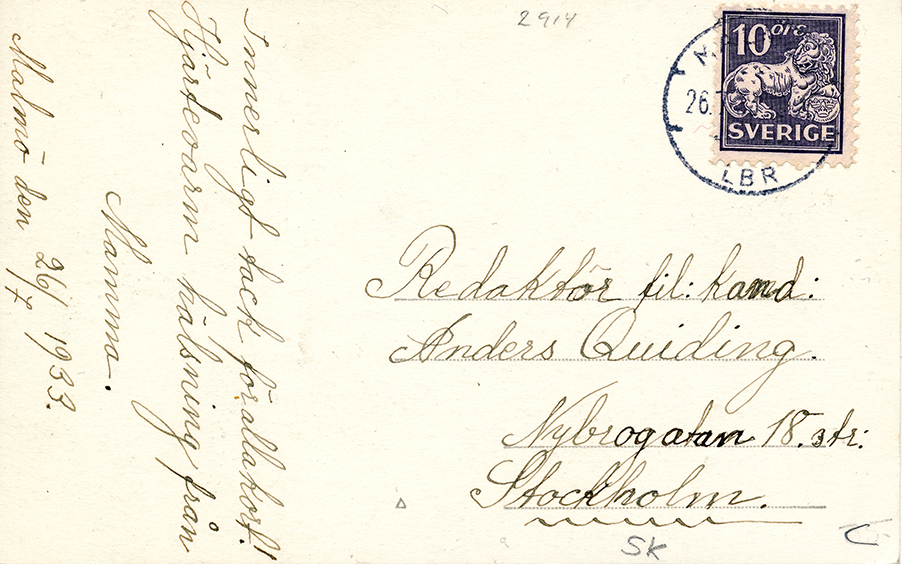 2914
10 öre
SVERIGE
26.
LBR
Innerligt tack för alla kort!
Hjärtevarm hälsning från
Mamma.
Malmö den 26/7 1933.
Redaktör fil: kand:
Anders Quiding.
Nybrogatan 18. 3tr:
Stockholm.
SK